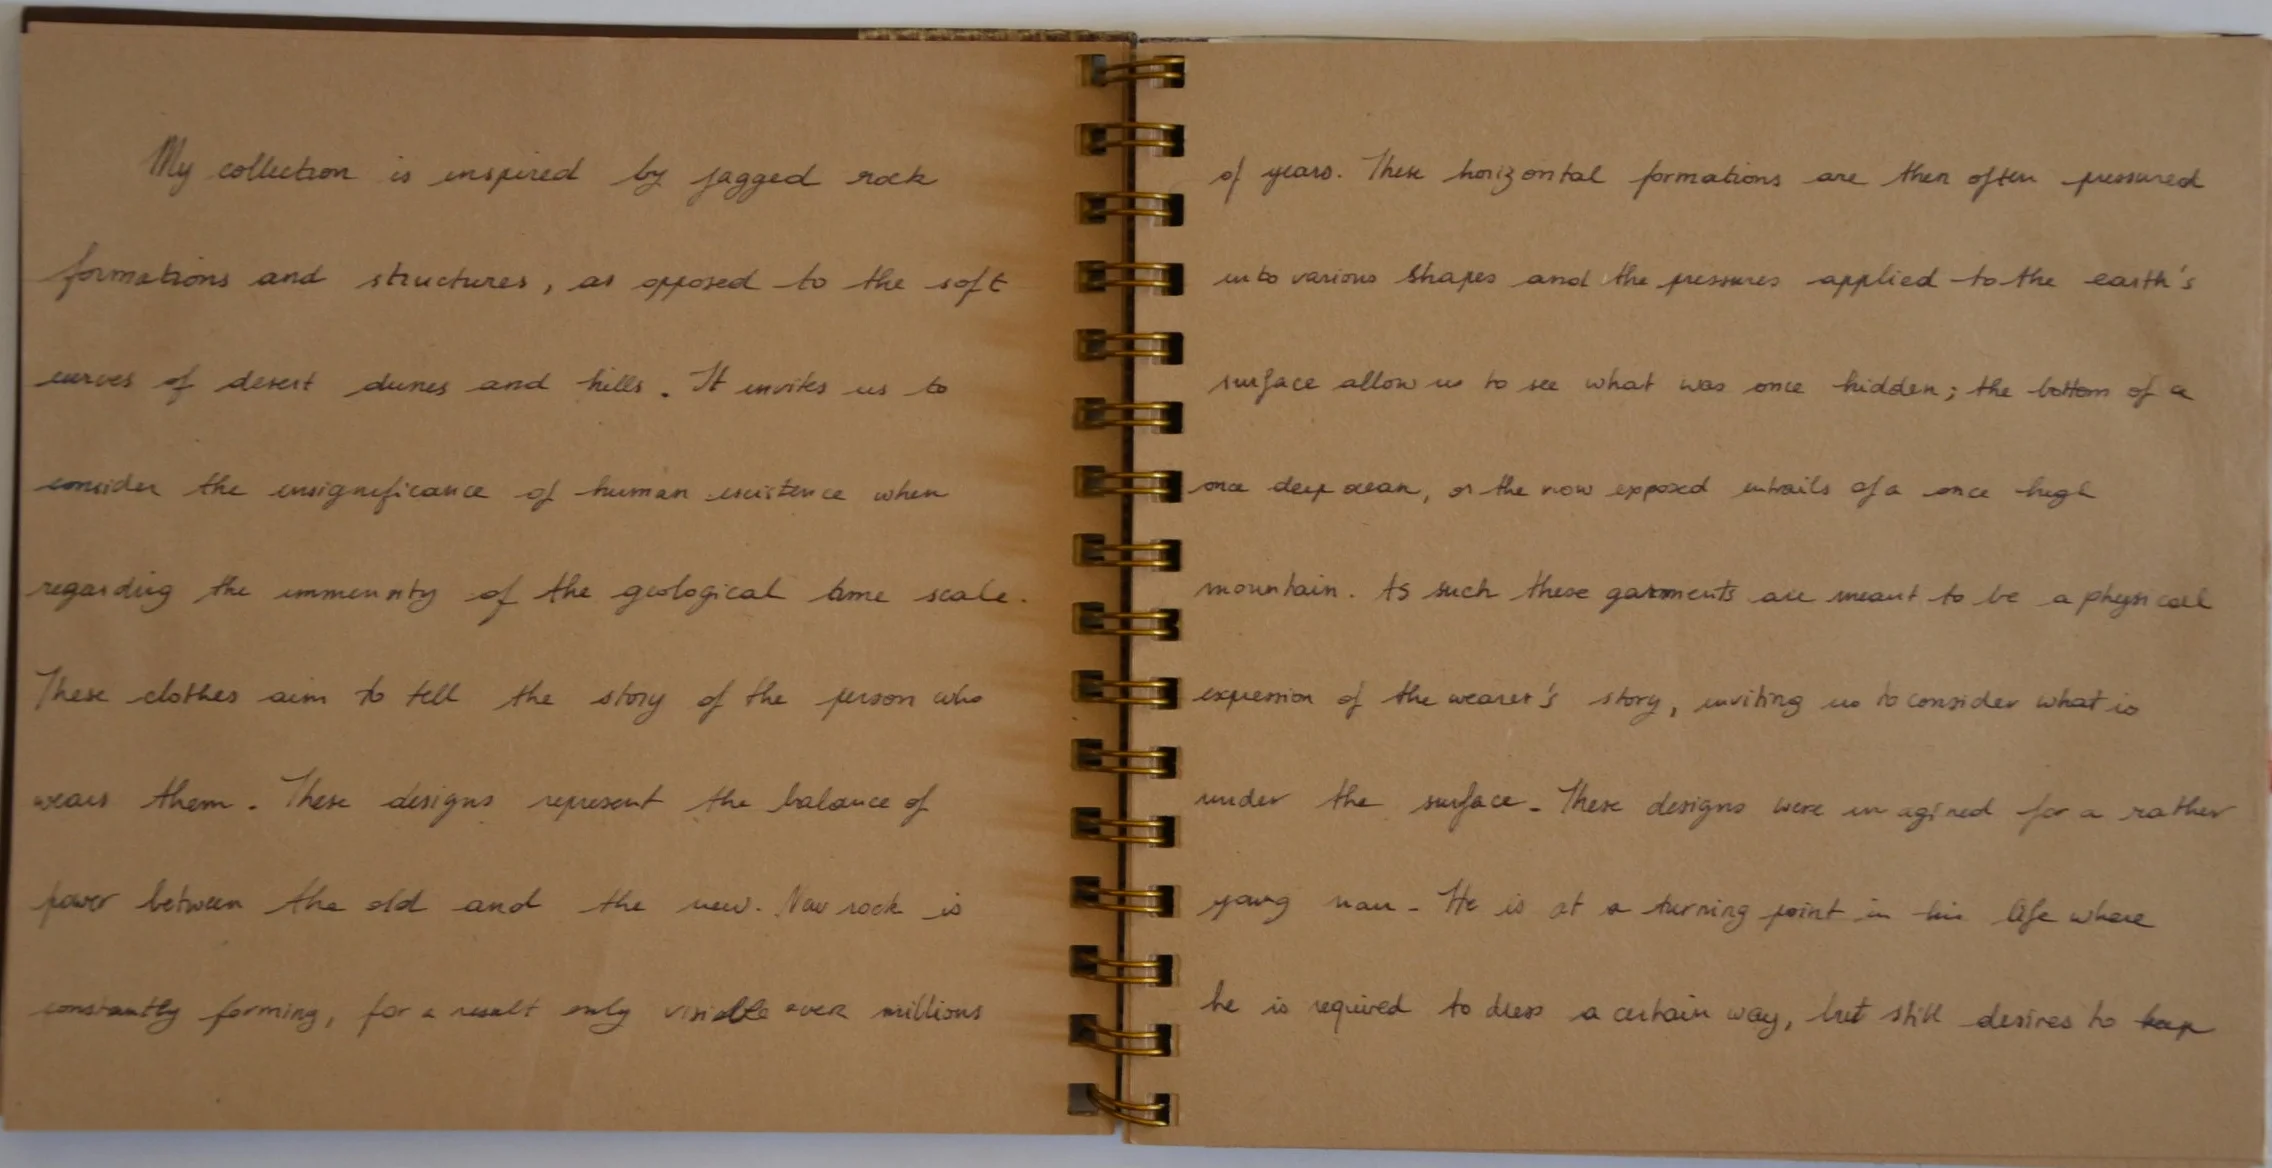 My collection is inspired by jagged rock
formations and structures, as opposed to the soft
curves of desert dunes and hills. It invites us to
consider the insignificance of human existence when
regarding the immensity of the geological time scale.
These clothes aim to tell the story of the person who
wears them. These designs represent the balance of
power between the old and the new. New rock is
constantly forming, for a result only visible over millions
of years. These horizontal formations are then often pressured
into various shapes and the pressures applied to the earth's
surface allow us to see what was once hidden; the bottom of a
once deep ocean, or the now exposed entrails of a once high
mountain. As such these garments are meant to be a physical
expression of the wearer's story, inviting us to consider what is
under the surface. These designs were imagined for a rather
young man. He is at a turning point in his life where
he is required to dress a certain way, but still desires to keep